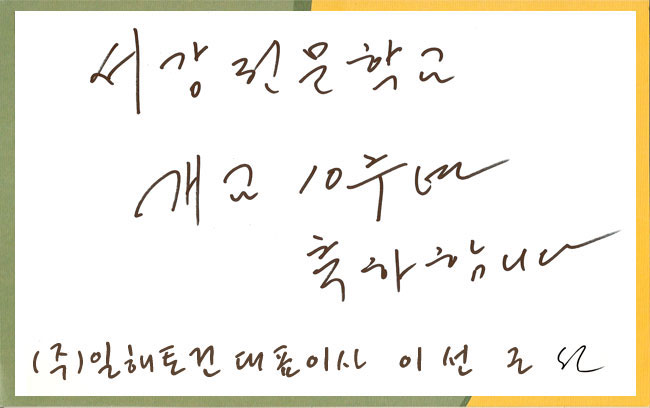 서강전문학교
개교 10주년
축하합니다
(주)일해토건 대표이사 이선근